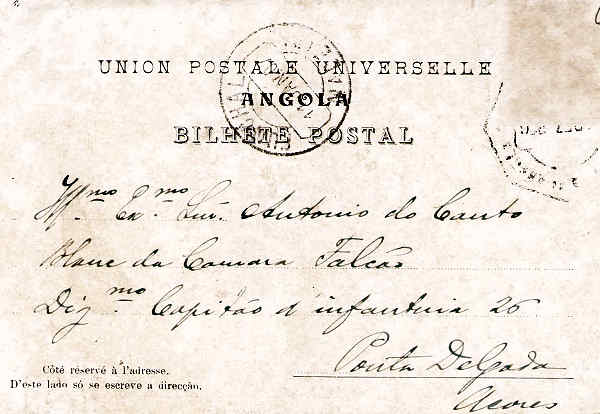 UNION POSTALE UNIVERSELLE
ANGOLA
BILHETE POSTAL
Illmo Exmo Snr. Antonio do Canto
da Camara Falcão
Digmo Capitão d'infantaria 26
Ponta Delgada
Açores
Côté réservé à l'adresse.
D'este lado só se escreve a direcção.